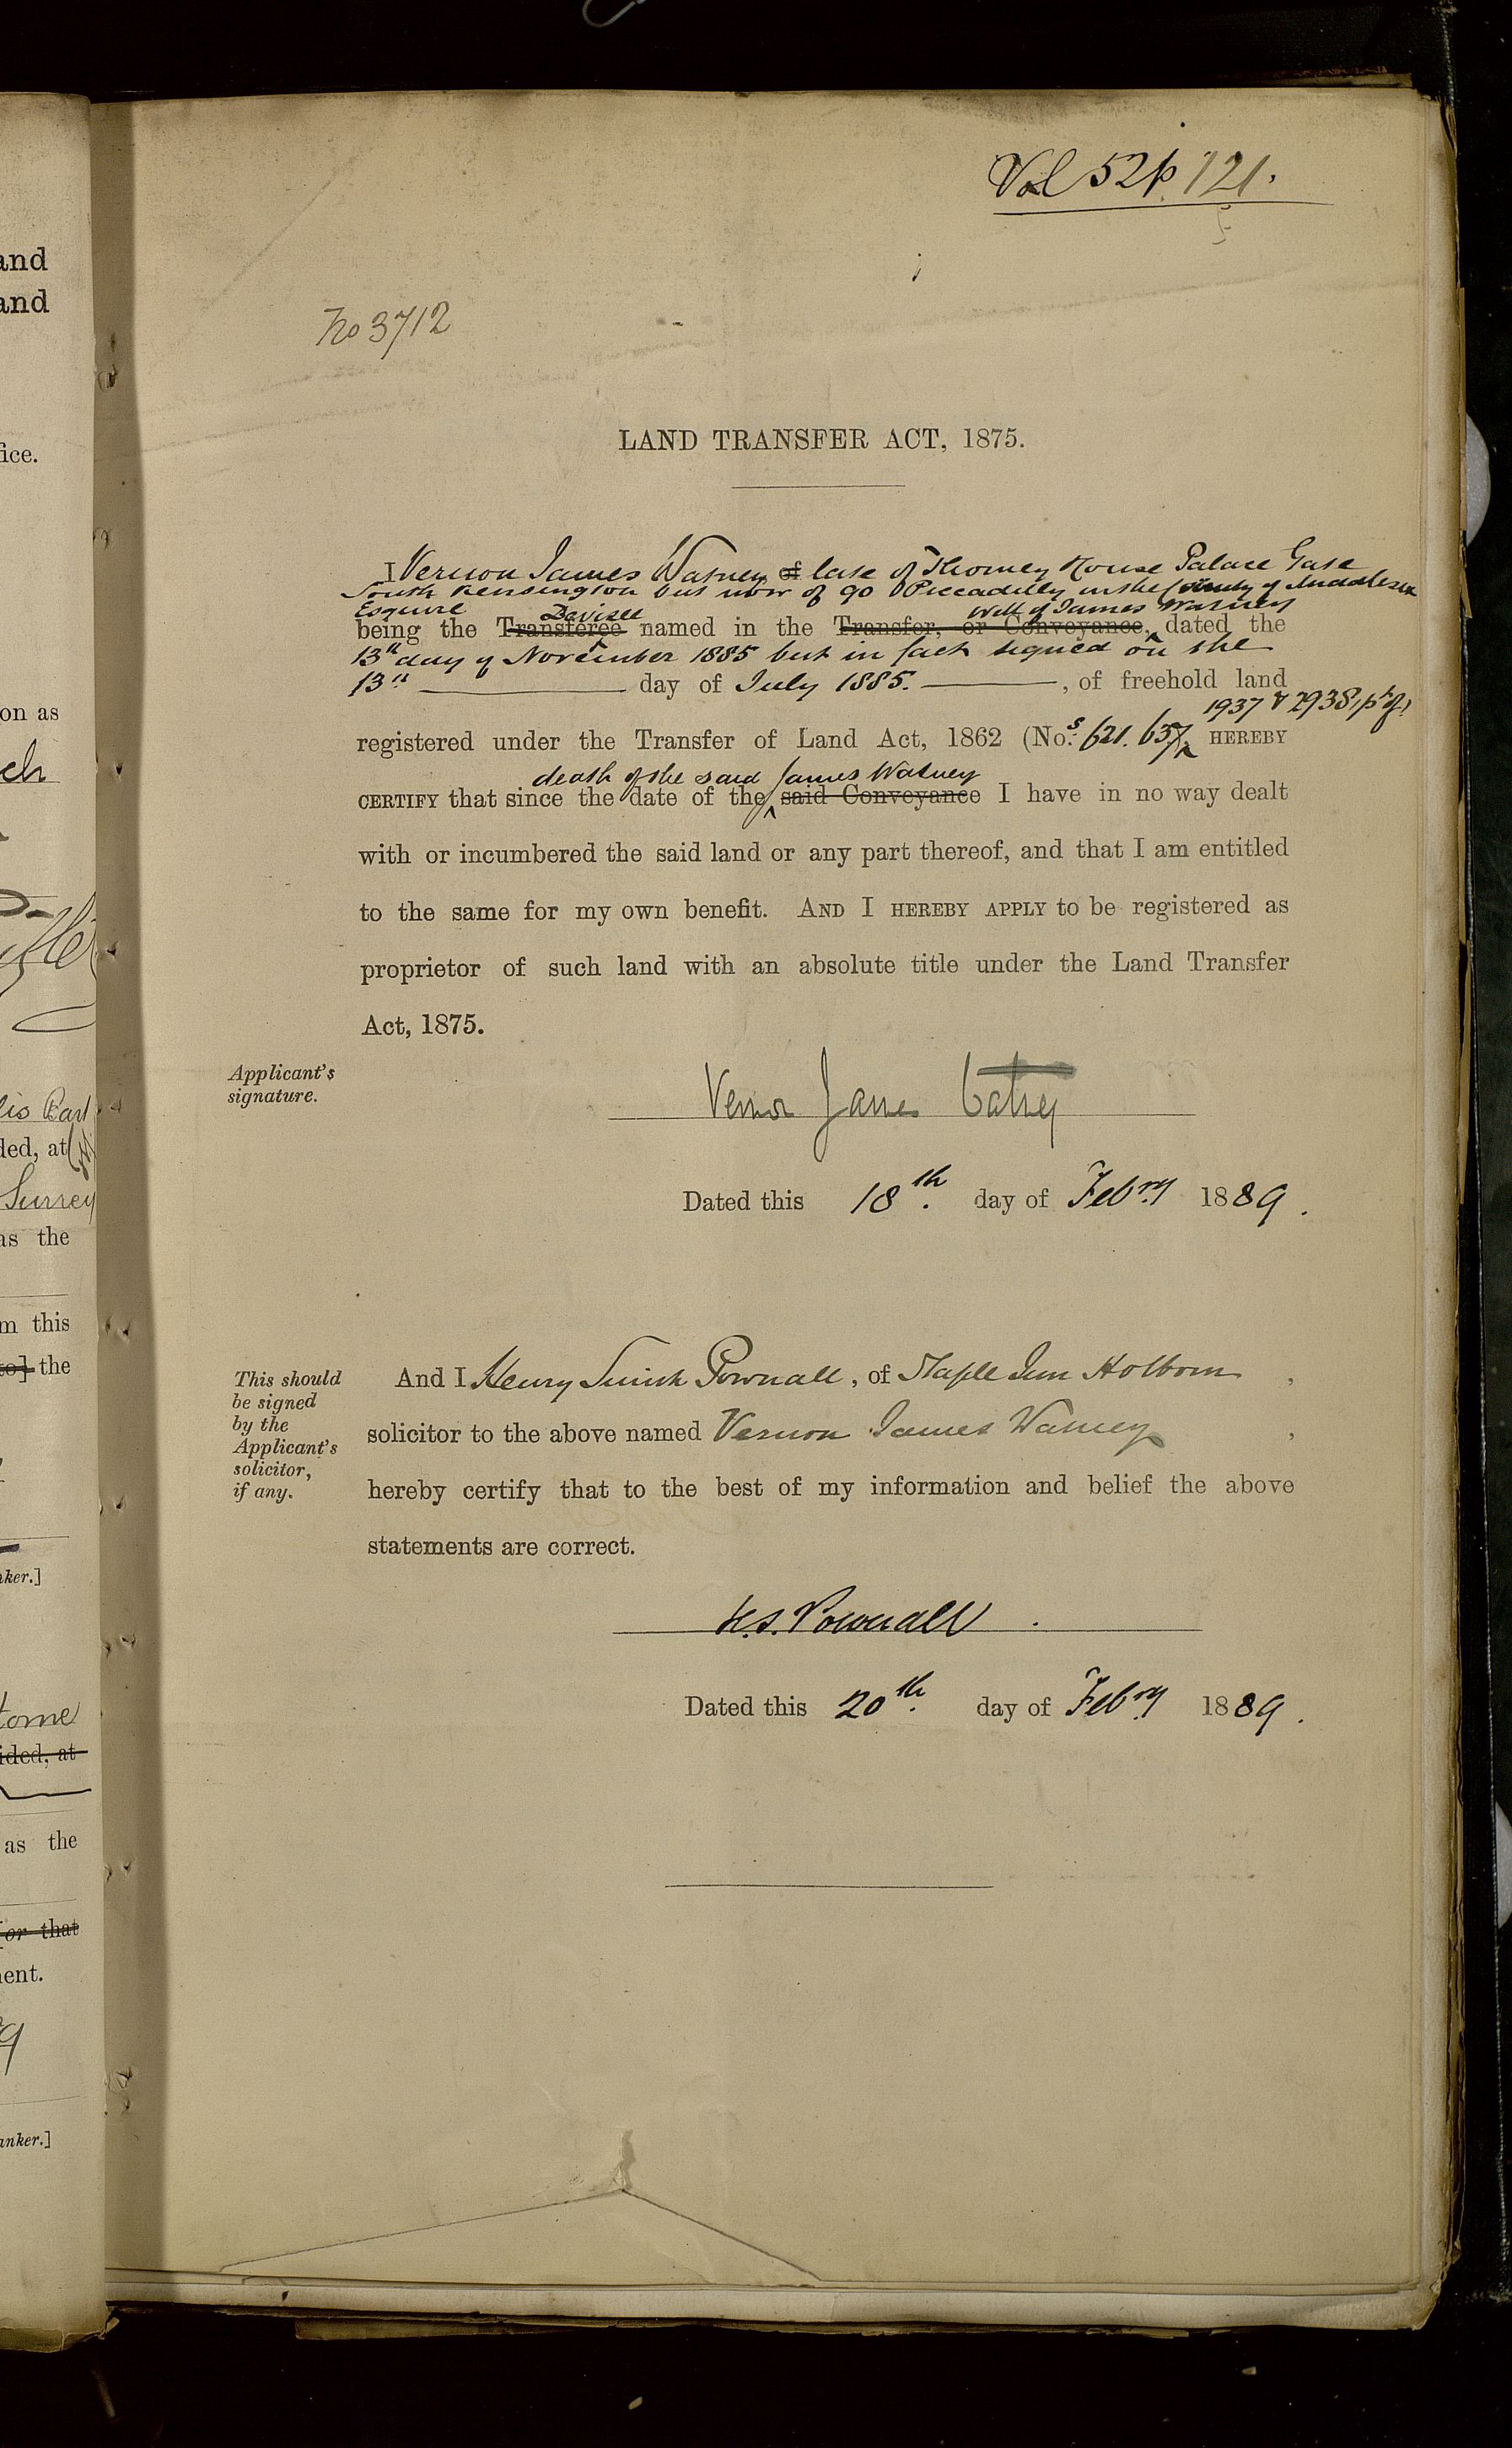 Vol 52 p. 121.
No 3712
LAND TRANSFER ACT, 1875.
I Vernon James Watney of late of Thorney House Palace Gate
South Kensington but now of 90 Piccadilly in the County of Middlesex
Esquire Devisee Will of James Watney
being the Transferee named in the Transfer, or Conveyance, dated the
13th day of November 1885 but in fact signed on the
13th day of July 1885. , of freehold land
1937 & 2938, pt of)
registered under the Transfer of Land Act, 1862 (Nos. 621. 637, HEREBY
death of the said James Watney
CERTIFY that since the date of the said Conveyance I have in no way dealt
with or incumbered the said land or any part thereof, and that I am entitled
to the same for my own benefit. AND I HEREBY APPLY to be registered as
proprietor of such land with an absolute title under the Land Transfer
Act, 1875.
Applicant's
signature.
Vernon James Watney
Dated this 18th. day of Febry 1889.
This should
be signed
by the
Applicant's
solicitor,
if any.
And I Henry Smith Pownall, of Staple Inn Holborn ,
solicitor to the above named Vernon James Watney ,
hereby certify that to the best of my information and belief the above
statements are correct.
H.S. Pownall.
Dated this 20th. day of Febry 1889.
and
and
fice.
on as
ded, at
Surrey
as the
m this
to] the
nker.]
ided, at
as the
[or that
ent.
anker.]